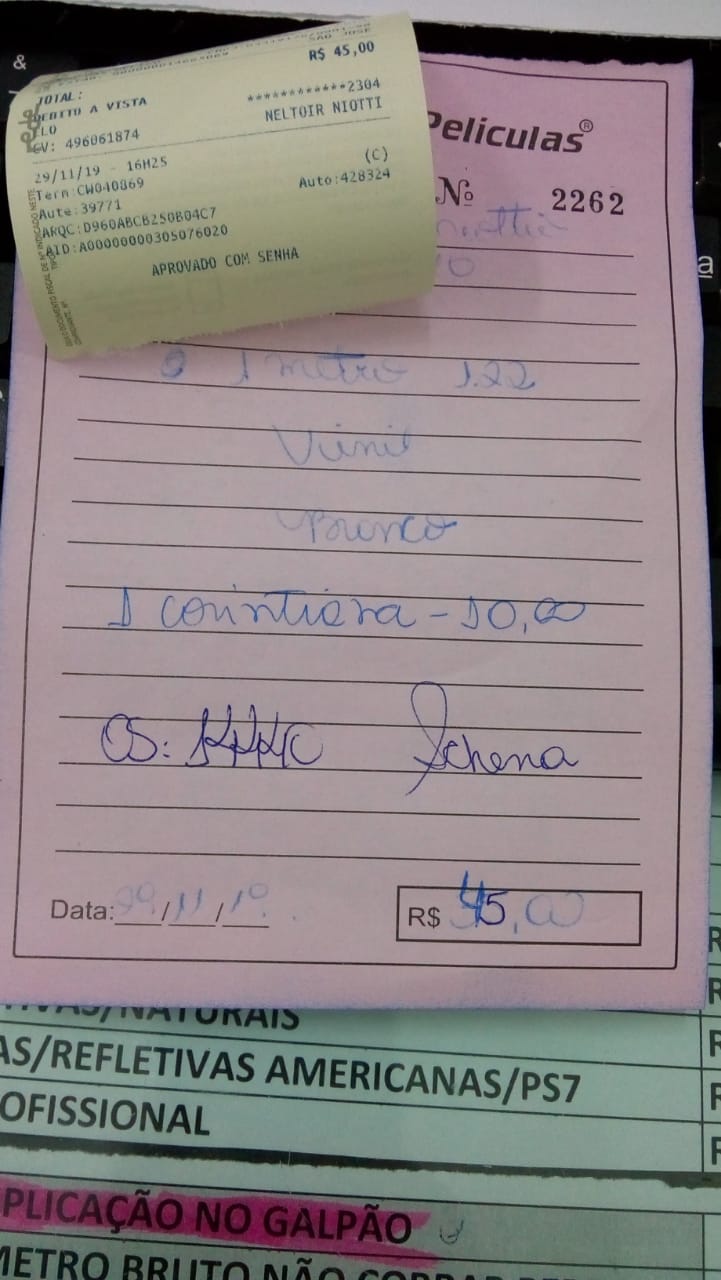 &
SAO JOSE
R$ 45,00
TOTAL:
DEBITO A VISTA
************2304
ELO
NELTOIR NIOTTI
CV: 496061874
29/11/19 - 16H25
(C)
Term:CW040869
Auto:428324
Aute:39771
ARQC:D960ABCB250B04C7
AID:A0000000305076020
APROVADO COM SENHA
Películas®
Nº 2262
ª
1 metro 1.22
Vinil
Branco
1 corintiana - 10,00
OS: KKKC Schena
Data: 29/11/19
R$ 45,00
IVAS/NATURAIS
AS/REFLETIVAS AMERICANAS/PS7
OFISSIONAL
PLICAÇÃO NO GALPÃO
METRO BRUTO NÃO COBRAR